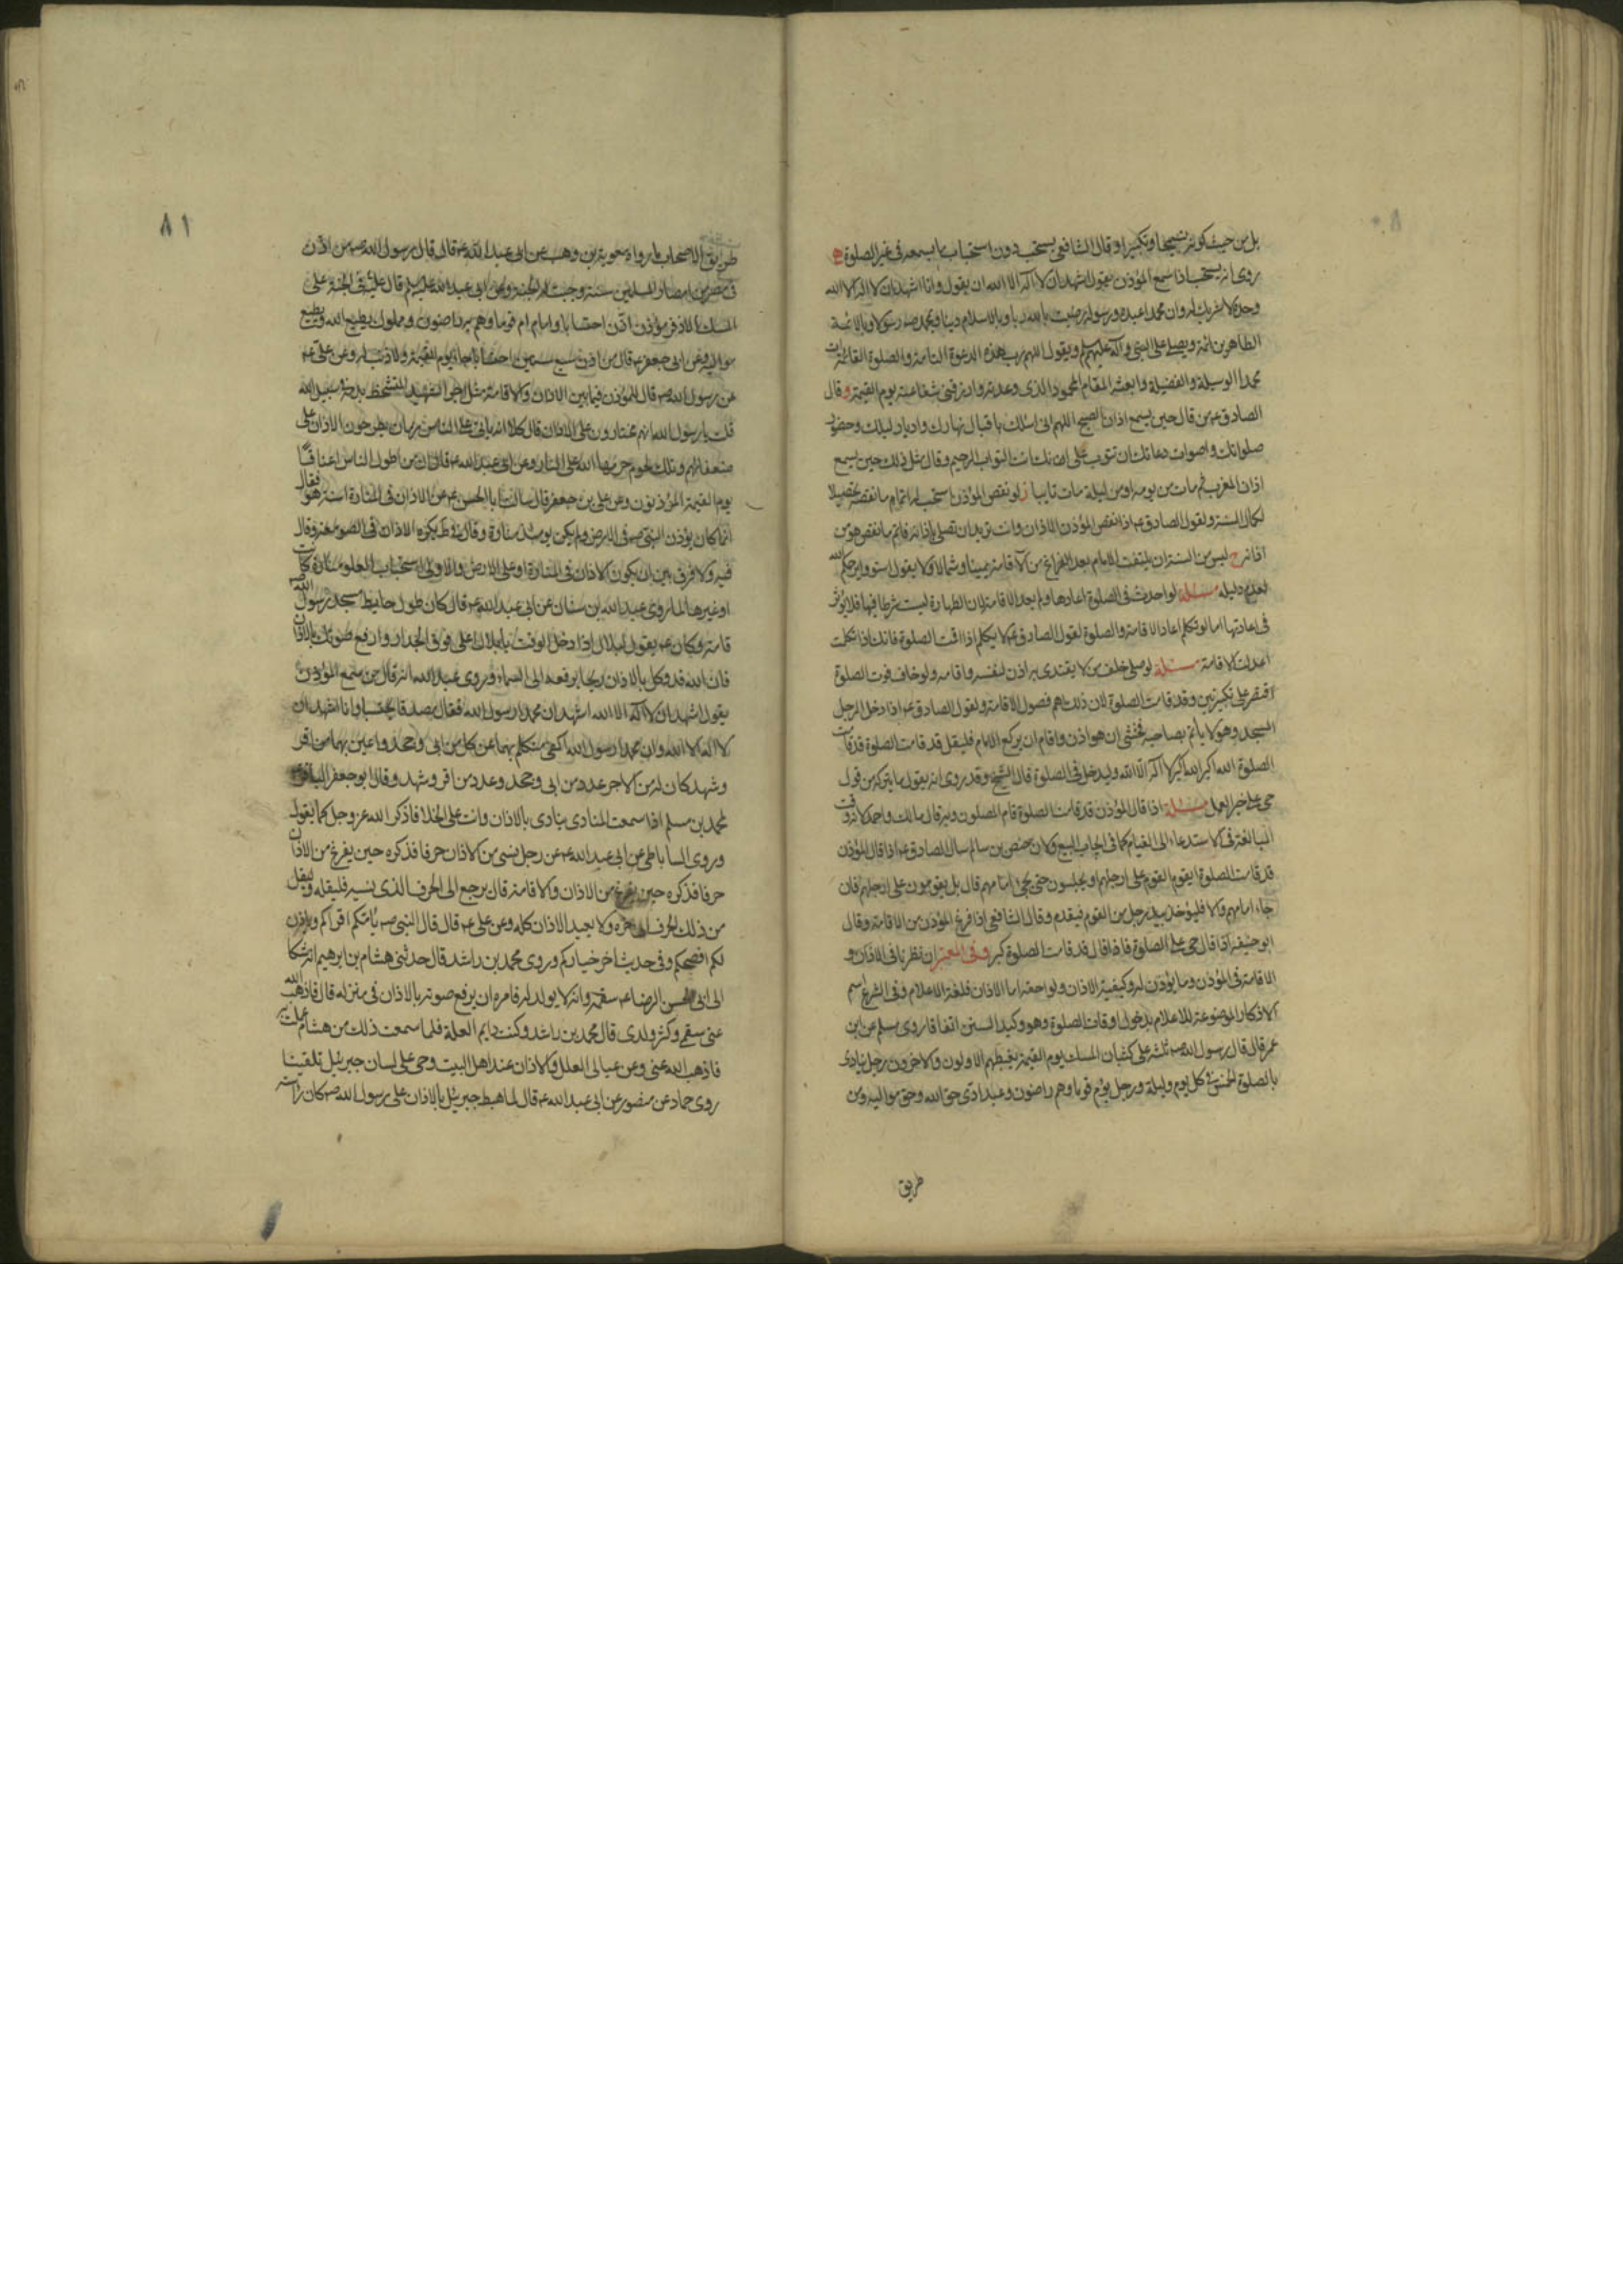 بل من حيث كونه تسبيحا وتكبيرا وقال الشافعى يستحب دون استحباب ما يسمعه فى غير الصلوة ه
روى انه يستحب اذا سمع المؤذن يقول اشهد ان لا اله الا الله ان يقول وانا اشهد ان لا اله الا الله
وحده لا شريك له وان محمدا عبده ورسوله رضيت بالله ربا وبالاسلام دينا وبمحمد صه رسولا وبالائمة
الطاهرين ائمة ويصلى على النبى وآله عليهم السلم ويقول اللهم رب هذه الدعوة التامة والصلوة القائمة ات
محمدا الوسيلة والفضيلة وابعثه المقام المحمود الذى وعدته وارزقنى شفاعته يوم القيمة و قال
الصادق ع من قال حين يسمع اذان الصبح اللهم انى اسئلك باقبال نهارك وادبار ليلك وحضور
صلواتك واصوات دعائك ان تتوب على انك انت التواب الرحيم وقال مثل ذلك حين يسمع
اذان المغرب ثم مات من يومه او من ليلة مات تايبا ز لو نقص المؤذن استحب له اتمام ما نقصه تحصيلا
لكمال السنة ولقول الصادق ع اذا نقص المؤذن الاذان وانت تريد ان تصلى باذانه فاتم ما نقص هو من
اذانه ح ليس من السنة ان يلتفت الامام بعد الفراغ من الاقامة يمينا وشمالا ولا يقول استووا يرحمكم الله
لعدم دليله مسئلة لو احدث فى الصلوة اعادها ولم يعد الاقامة لان الطهارة ليست شرطا فيها فلا يؤثر
فى اعادتها اما لو تكلم اعاد الاقامة والصلوة لقول الصادق ع لا يتكلم اذا اقمت الصلوة فانك اذا تكلمت
اعدت الاقامة مسئلة لو صلى خلف من لا يقتدى به اذن لنفسه واقامه ولو خاف فوت الصلوة
اقتصر على تكبيرتين وقد قامت الصلوة لان ذلك اهم فصول الاقامة ولقول الصادق ع اذا دخل الرجل
المسجد وهو لا يأتم بصاحبه فخشى ان هو اذن واقام ان يركع الامام فليقل قد قامت الصلوة قد قامت
الصلوة الله اكبر الله اكبر لا اله الا الله وليدخل فى الصلوة قال الشيخ وقد روى انه يقول ما يتركه من قول
حى على خير العمل مسئلة اذا قال المؤذن قد قامت الصلوة قام المصلون وبه قال مالك واحمد لانه وقت
المبالغة فى الاستدعاء الى القيام كما فى ايجاب البيع ولان حفص بن سالم سال الصادق ع اذا قال المؤذن
قد قامت الصلوة ايقوم القوم على ارجلهم او يجلسون حتى يجئ امامهم قال بل يقومون على ارجلهم فان
جاء امامهم والا فليؤخذ بيد رجل من القوم فيقدم وقال الشافعى اذا فرغ المؤذن من الاقامة وقال
ابو حنيفة اذا قال حى على الصلوة فاذا قال قد قامت الصلوة كبر وفى المعتبر ان نظرنا فى الاذان و
الاقامة فى المؤذن وما يؤذن له وكيفية الاذان ولواحقه اما الاذان فلغة الاعلام وفى الشرع اسم
الاذكار الموضوعة للاعلام بدخول اوقات الصلوة وهو وكيد السنن اتفاقا روى مسلم عن ابن
عمر قال قال رسول الله صه ثلثة على كثبان المسك يوم القيمة يغبطهم الاولون والاخرون رجل ينادى
بالصلوة الخمس فى كل يوم وليلة ورجل يؤم قوما وهم راضون وعبد ادى حق الله وحق مواليه ومن
طريق
٨١
طريق الاصحاب ما رواه معوية بن وهب عن ابى عبد الله ع قال قال رسول الله صه من اذن
فى مصر من امصار المسلمين سنة وجبت له الجنة وعن ابى عبد الله عليه السلم قال ثلثة فى الجنة على
المسك الاذفر مؤذن اذن احتسابا وامام ام قوما وهم به راضون ومملوك يطيع الله ويطيع
مواليه وعن ابى جعفر ع قال من اذن سبع سنين احتسابا جاء يوم القيمة ولا ذنب له وعن على ع
عن رسول الله صه قال للمؤذن فيما بين الاذان والاقامة مثل اجر الشهيد المتشحط بدمه فى سبيل الله
قلت يا رسول الله انهم يجتلدون على الاذان قال كلا انه ياتى على الناس زمان يطرحون الاذان على
ضعفائهم وتلك لحوم حرمها الله على النار وعن ابى عبد الله ع قال ان من اطول الناس اعناقا
يوم القيمة المؤذنون وعن على بن جعفر قال سالت ابا الحسن ع عن الاذان فى المنارة اسنة هو فقال
انما كان يؤذن النبى صه فى الارض ولم يكن يومئذ منارة وقال فى ط يكره الاذان فى الصومعة وقال
فيه ولا فرق بين ان يكون الاذان فى المنارة او على الارض والاولى استحباب العلو منارة كانت
او غيرها لما روى عبد الله بن سنان عن ابى عبد الله ع قال كان طول حايط مسجد رسول الله صه
قامة وكان ع يقول لبلال اذا دخل الوقت يا بلال اعل فوق الجدار وارفع صوتك بالاذان
فان الله قد وكل بالاذان ريحا يرفعه الى السماء وروى عبد الله انه قال من سمع المؤذن
يقول اشهد ان لا اله الا الله اشهد ان محمدا رسول الله فقال مصدقا محتسبا وانا اشهد ان
لا اله الا الله وان محمدا رسول الله اكتفى بهما عن كل من ابى وجحد واعين بهما من اقر
وشهد كان له من الاجر عدد من ابى وجحد وعدد من اقر وشهد وقال ابو جعفر الباقر ع
لمحمد بن مسلم اذا سمعت المنادى ينادى بالاذان وانت على الخلا فاذكر الله عز وجل كما يقول
وروى الساباطى عن ابى عبد الله ع عن رجل نسى من الاذان حرفا فذكره حين يفرغ من الاذان
حرفا فذكره حين يفرغ من الاذان والاقامة قال يرجع الى الحرف الذى نسيه فليقله وليقل
من ذلك الحرف الى اخره ولا يعيد الاذان كله وعن على ع قال قال النبى صه يؤمكم اقرأكم ويؤذن
لكم افصحكم وفى حديث اخر خياركم وروى محمد بن راشد قال حدثنى هشام بن ابرهيم انه شكا
الى ابى الحسن الرضا ع سقمه وانه لا يولد له فامره ان يرفع صوته بالاذان فى منزله قال فاذهب الله
عنى سقمى وكثر ولدى قال محمد بن راشد وكنت دايم العلة فلما سمعت ذلك من هشام عملت به
فاذهب الله عنى وعن عيالى العلل والاذان عند اهل البيت وحى على لسان جبرئيل تلقينا
روى حماد عن منصور عن ابى عبد الله ع قال لما هبط جبرئيل بالاذان على رسول الله صه كان راسه